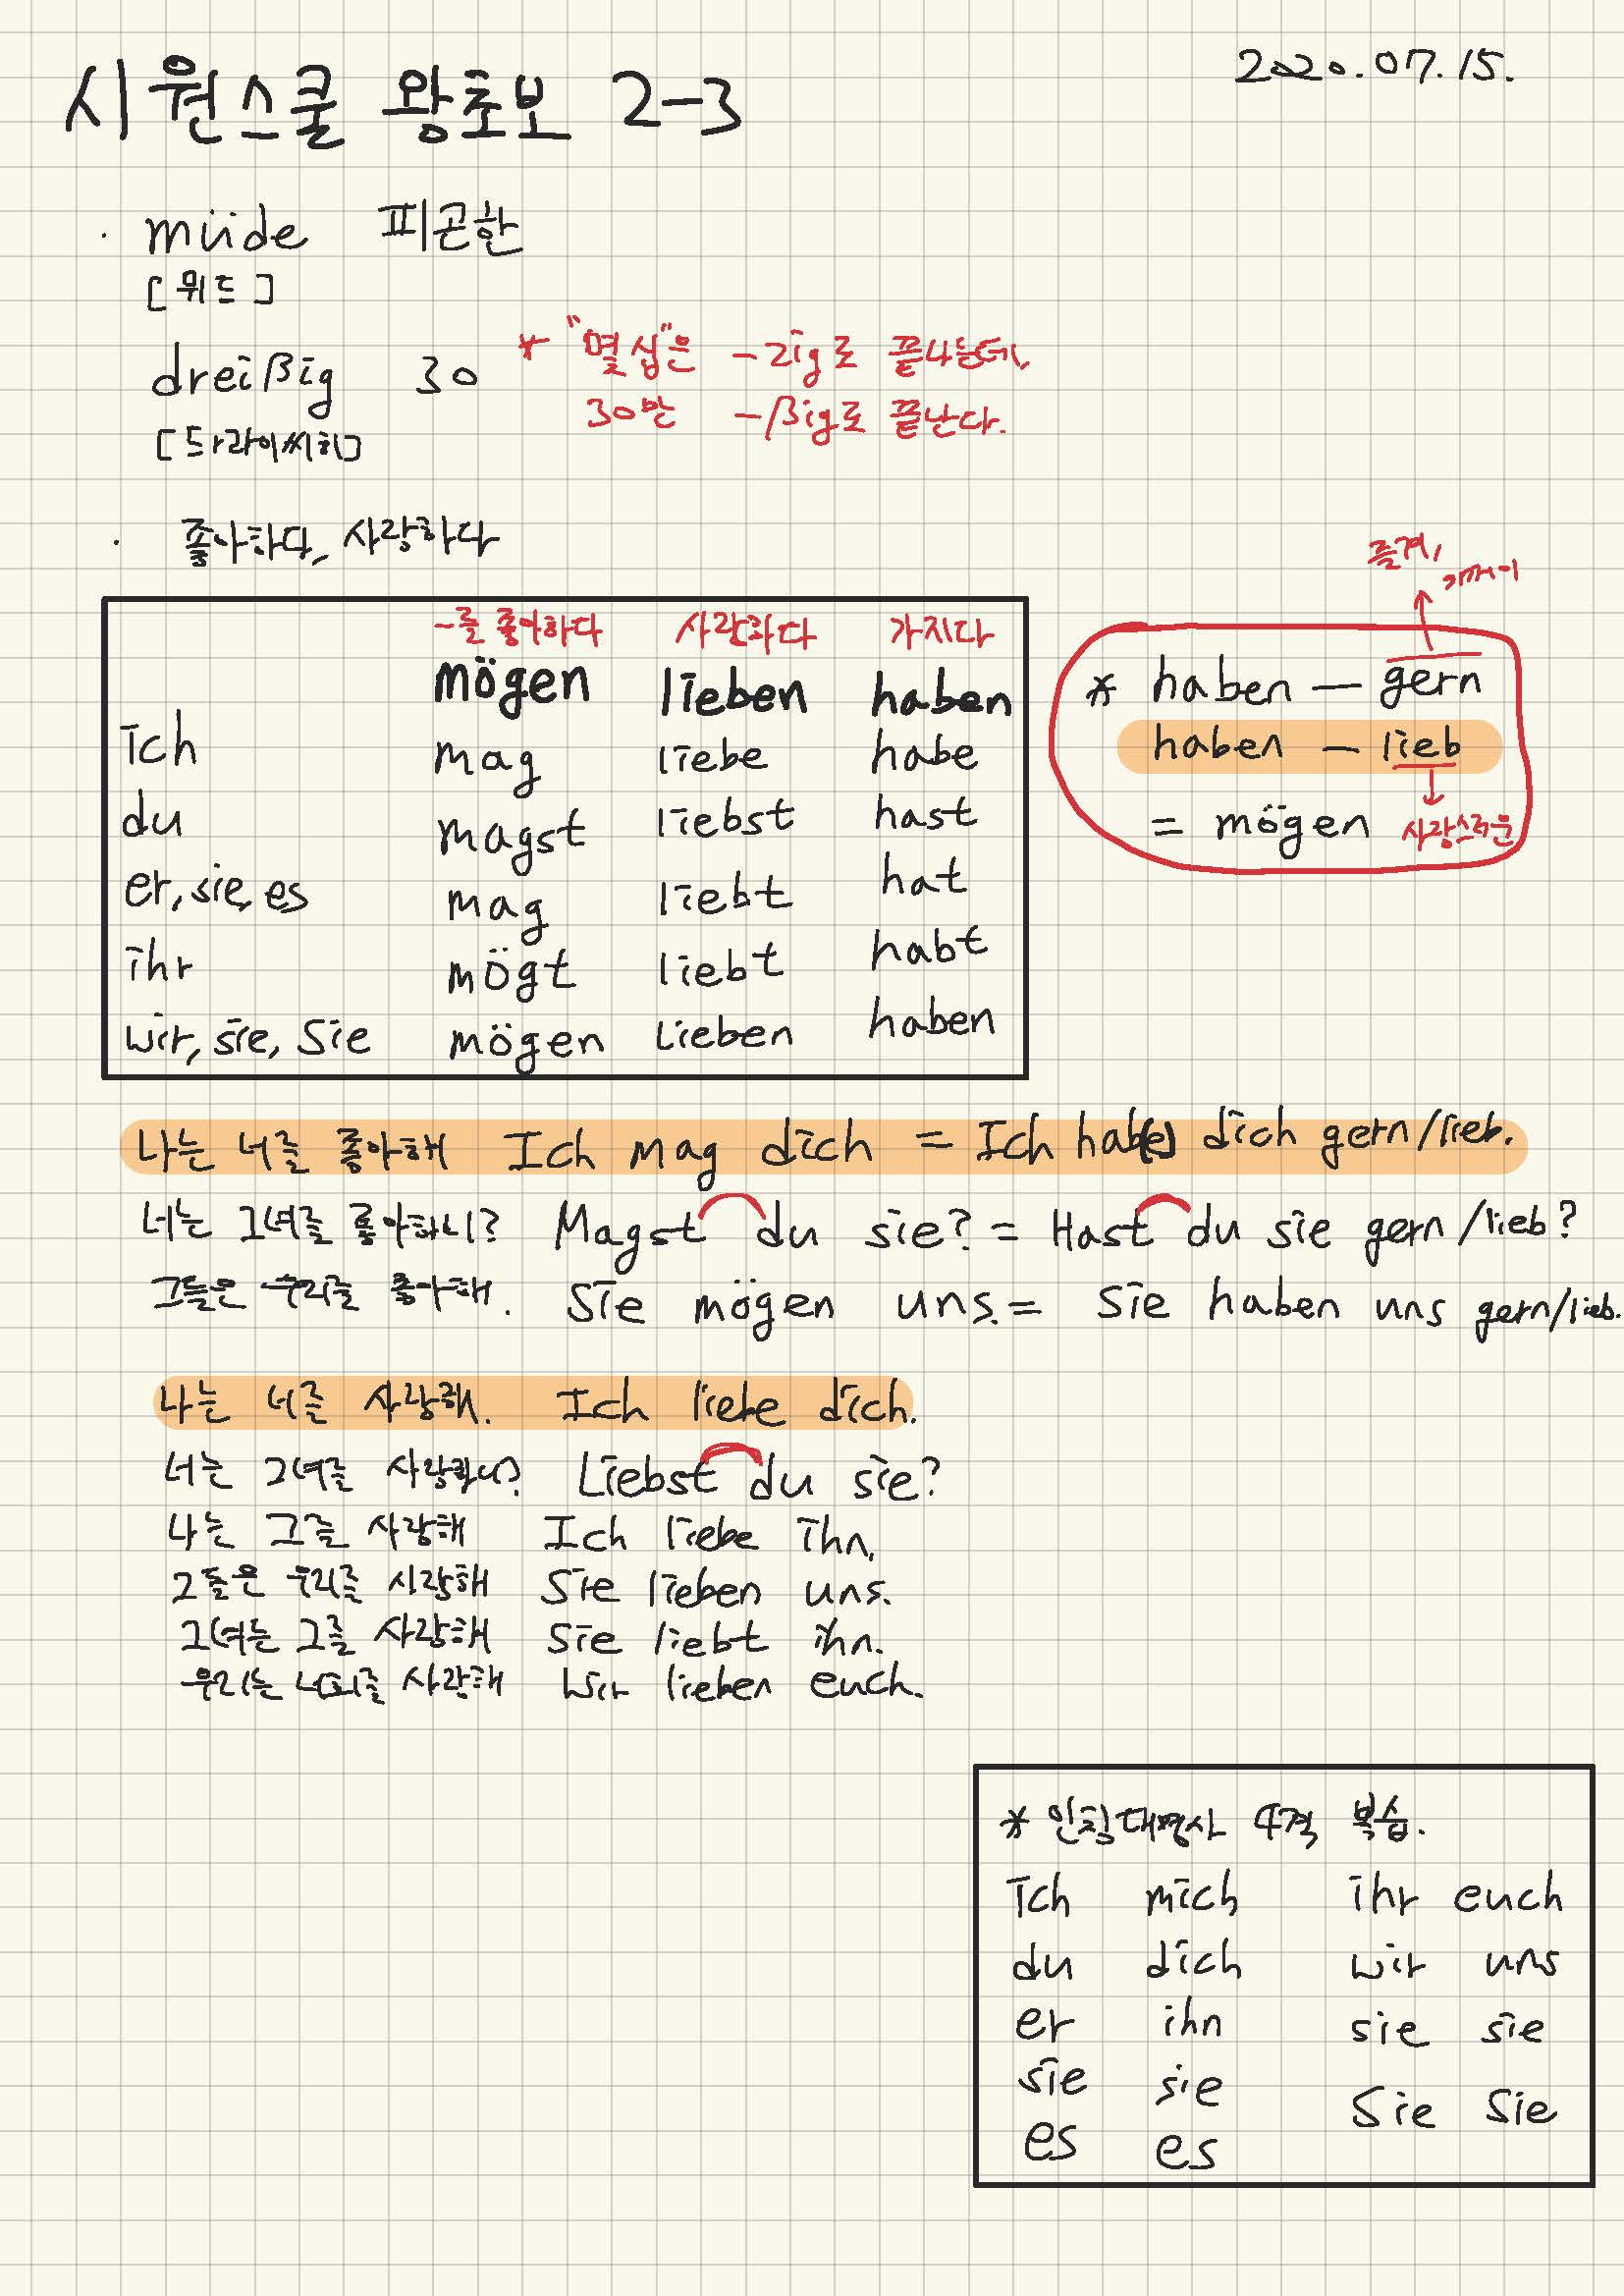 시원스쿨 왕초보 2-3
2020.07.15.
· müde 피곤한
[뮈드]
dreißig 30
[드라이씨히]
* "몇십"은 -zig로 끝나는데,
30만 -ßig로 끝난다.
· 좋아하다, 사랑하다
-를 좋아하다 사랑하다 가지다
mögen lieben haben
ich mag liebe habe
du magst liebst hast
er, sie, es mag liebt hat
ihr mögt liebt habt
wir, sie, Sie mögen lieben haben
즐겨, 기꺼이
* haben — gern
haben — lieb
= mögen 사랑스러운
나는 너를 좋아해 Ich mag dich = Ich hab(e) dich gern/lieb.
너는 그녀를 좋아하니? Magst du sie? = Hast du sie gern/lieb?
그들은 우리를 좋아해. Sie mögen uns. = Sie haben uns gern/lieb.
나는 너를 사랑해. Ich liebe dich.
너는 그녀를 사랑하니? Liebst du sie?
나는 그를 사랑해 Ich liebe ihn.
그들은 우리를 사랑해 Sie lieben uns.
그녀는 그를 사랑해 Sie liebt ihn.
우리는 너희를 사랑해 Wir lieben euch.
* 인칭대명사 4격 복습.
ich mich ihr euch
du dich wir uns
er ihn sie sie
sie sie Sie Sie
es es